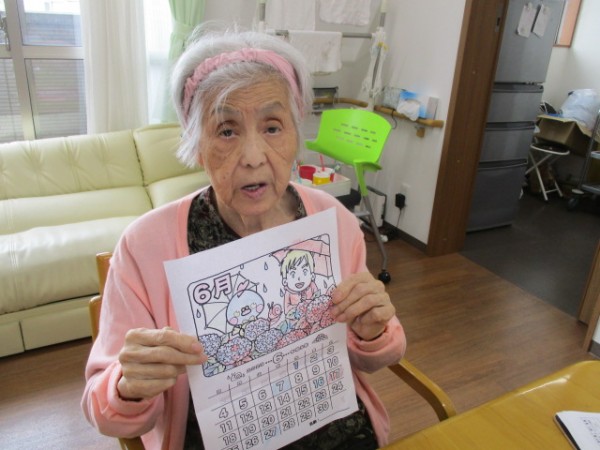 6月
6
1 2 3
4 5 6 7 8 9 10
11 12 13 14 15 16 17
18 19 20 21 22 23 24
25 26 27 28 29 30